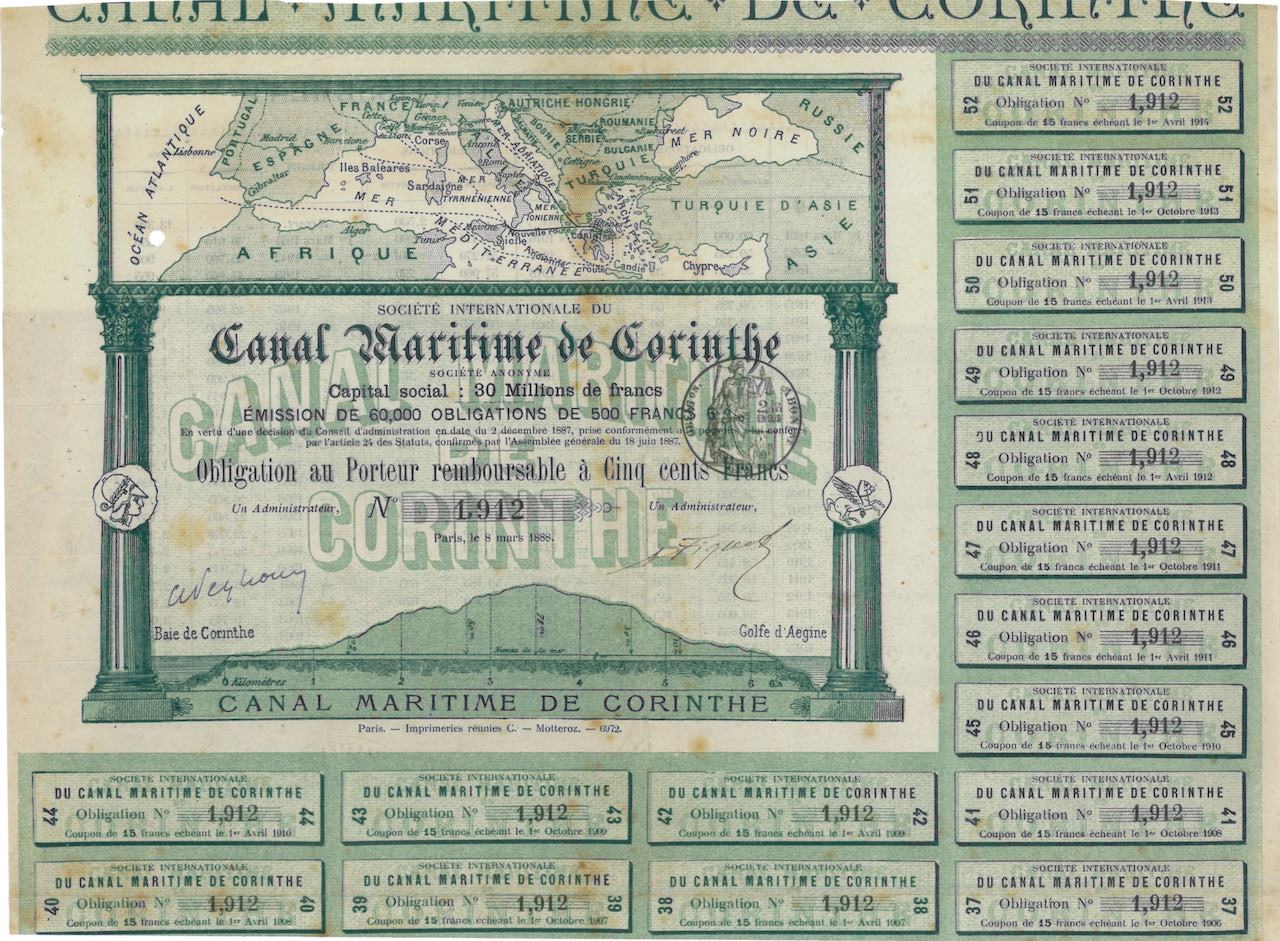 CANAL MARITIME DE CORINTHE
OCÉAN ATLANTIQUE
PORTUGAL
Lisbonne
Madrid
ESPAGNE
Barcelone
Gibraltar
FRANCE
Lyon
Turin
Venise
Gênes
Cette
Corse
Iles Baléares
Sardaigne
MER
TYRRHÉNIENNE
Ancone
Rome
Naples
MER ADRIATIQUE
AUTRICHE-HONGRIE
BOSNIE
SERBIE
ROUMANIE
Bukarest
BULGARIE
Cettigne
TURQUIE
Constantinople
Bosphore
MER NOIRE
RUSSIE
TURQUIE D'ASIE
ASIE
ARCHIPEL
MER
IONIENNE
MER MÉDITERRANÉE
Messine
Sicile
Nouvelle route
Ancienne route
Candie
Chypre
Alger
Tunis
AFRIQUE
SOCIÉTÉ INTERNATIONALE DU
Canal Maritime de Corinthe
SOCIÉTÉ ANONYME
Capital social : 30 Millions de francs
ÉMISSION DE 60,000 OBLIGATIONS DE 500 FRANCS 6
En vertu d'une décision du Conseil d'administration en date du 2 décembre 1887, prise conformément aux pouvoirs à lui conférés
par l'article 24 des Statuts, confirmés par l'Assemblée générale du 18 juin 1887.
Obligation au Porteur remboursable à Cinq cents Francs
CANAL MARITIME DE CORINTHE
Un Administrateur, No 1,912 Un Administrateur,
Paris, le 8 mars 1888.
Baie de Corinthe
Golfe d'Aegine
50 m
78 m
Niveau de la mer
0 Kilomètres 1 2 3 4 5 6
CANAL MARITIME DE CORINTHE
Paris. — Imprimeries réunies C. — Motteroz. — 6972.
52
SOCIÉTÉ INTERNATIONALE
DU CANAL MARITIME DE CORINTHE
Obligation No 1,912
Coupon de 15 francs échéant le 1er Avril 1914
52
51
SOCIÉTÉ INTERNATIONALE
DU CANAL MARITIME DE CORINTHE
Obligation No 1,912
Coupon de 15 francs échéant le 1er Octobre 1913
51
50
SOCIÉTÉ INTERNATIONALE
DU CANAL MARITIME DE CORINTHE
Obligation No 1,912
Coupon de 15 francs échéant le 1er Avril 1913
50
49
SOCIÉTÉ INTERNATIONALE
DU CANAL MARITIME DE CORINTHE
Obligation No 1,912
Coupon de 15 francs échéant le 1er Octobre 1912
49
48
SOCIÉTÉ INTERNATIONALE
DU CANAL MARITIME DE CORINTHE
Obligation No 1,912
Coupon de 15 francs échéant le 1er Avril 1912
48
47
SOCIÉTÉ INTERNATIONALE
DU CANAL MARITIME DE CORINTHE
Obligation No 1,912
Coupon de 15 francs échéant le 1er Octobre 1911
47
46
SOCIÉTÉ INTERNATIONALE
DU CANAL MARITIME DE CORINTHE
Obligation No 1,912
Coupon de 15 francs échéant le 1er Avril 1911
46
45
SOCIÉTÉ INTERNATIONALE
DU CANAL MARITIME DE CORINTHE
Obligation No 1,912
Coupon de 15 francs échéant le 1er Octobre 1910
45
44
SOCIÉTÉ INTERNATIONALE
DU CANAL MARITIME DE CORINTHE
Obligation No 1,912
Coupon de 15 francs échéant le 1er Avril 1910
44
43
SOCIÉTÉ INTERNATIONALE
DU CANAL MARITIME DE CORINTHE
Obligation No 1,912
Coupon de 15 francs échéant le 1er Octobre 1909
43
42
SOCIÉTÉ INTERNATIONALE
DU CANAL MARITIME DE CORINTHE
Obligation No 1,912
Coupon de 15 francs échéant le 1er Avril 1909
42
41
SOCIÉTÉ INTERNATIONALE
DU CANAL MARITIME DE CORINTHE
Obligation No 1,912
Coupon de 15 francs échéant le 1er Octobre 1908
41
40
SOCIÉTÉ INTERNATIONALE
DU CANAL MARITIME DE CORINTHE
Obligation No 1,912
Coupon de 15 francs échéant le 1er Avril 1908
40
39
SOCIÉTÉ INTERNATIONALE
DU CANAL MARITIME DE CORINTHE
Obligation No 1,912
Coupon de 15 francs échéant le 1er Octobre 1907
39
38
SOCIÉTÉ INTERNATIONALE
DU CANAL MARITIME DE CORINTHE
Obligation No 1,912
Coupon de 15 francs échéant le 1er Avril 1907
38
37
SOCIÉTÉ INTERNATIONALE
DU CANAL MARITIME DE CORINTHE
Obligation No 1,912
Coupon de 15 francs échéant le 1er Octobre 1906
37